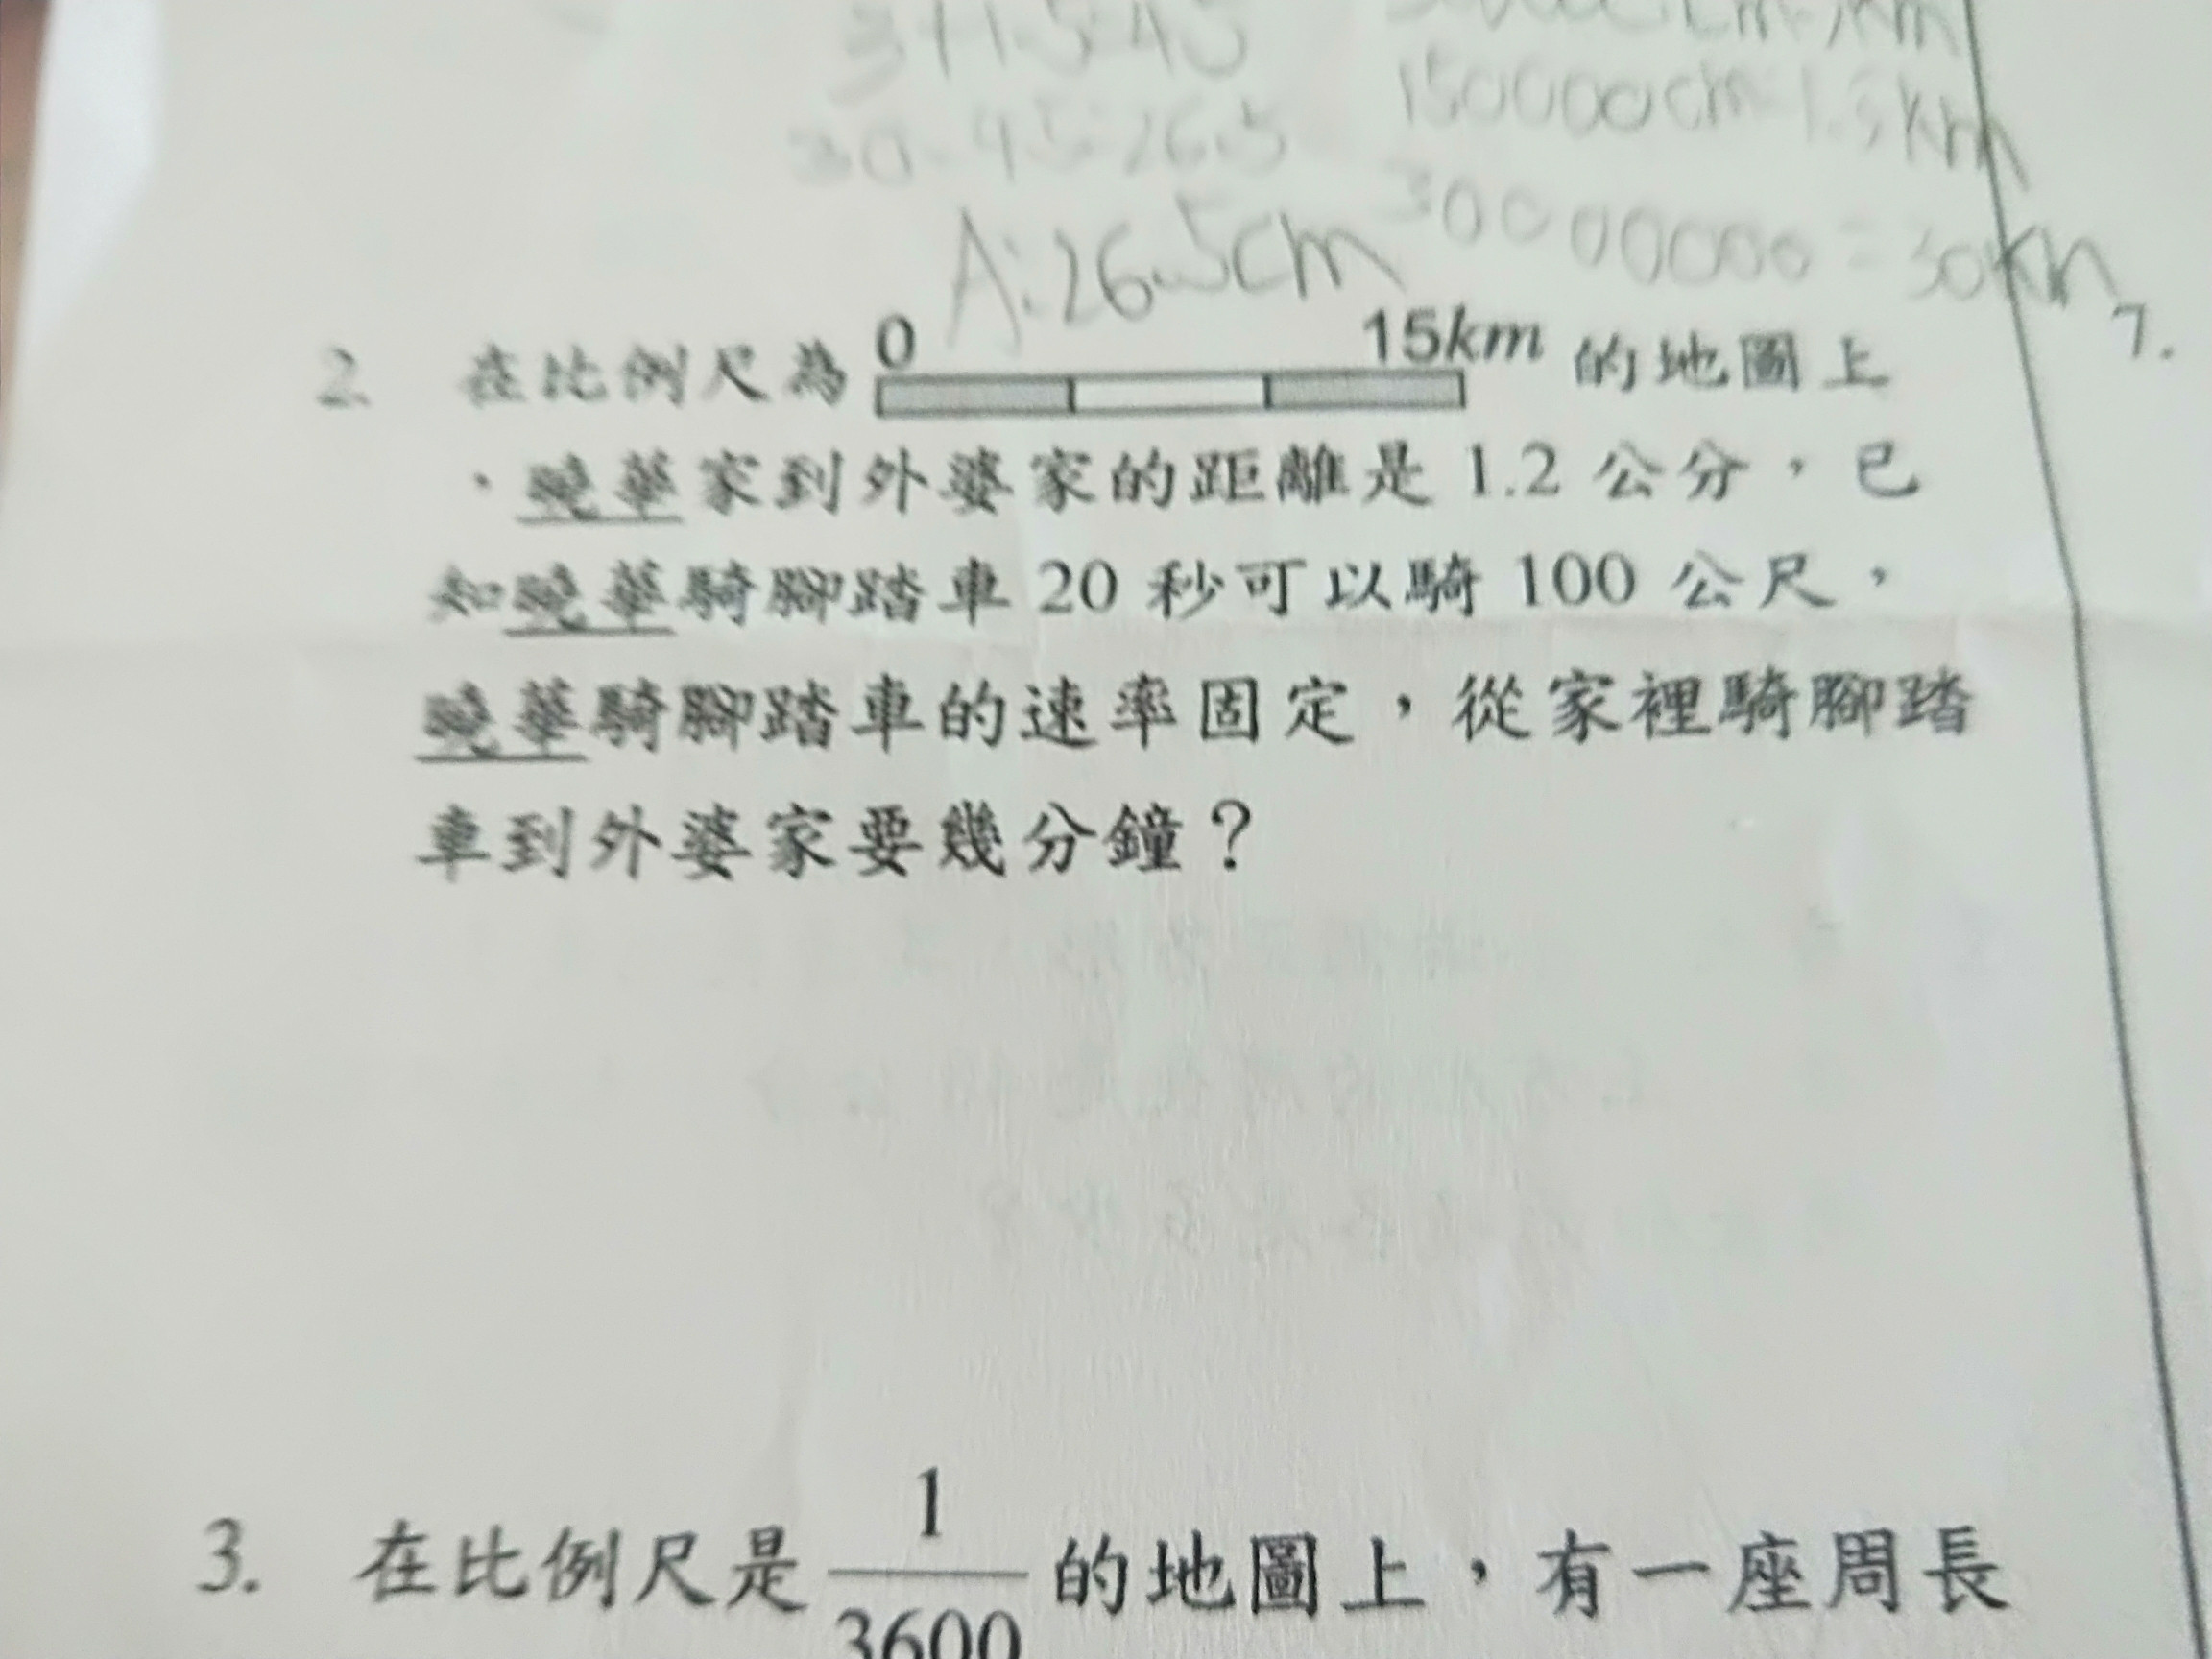 3+1.5=4.5
150000cm=1.5km
30-4.5=26.5
A:26.5cm
3000000=30km
7.
0 15km
2. 在比例尺為 的地圖上
，曉華家到外婆家的距離是 1.2 公分，已
知曉華騎腳踏車 20 秒可以騎 100 公尺，
曉華騎腳踏車的速率固定，從家裡騎腳踏
車到外婆家要幾分鐘？
3. 在比例尺是 1/3600 的地圖上，有一座周長